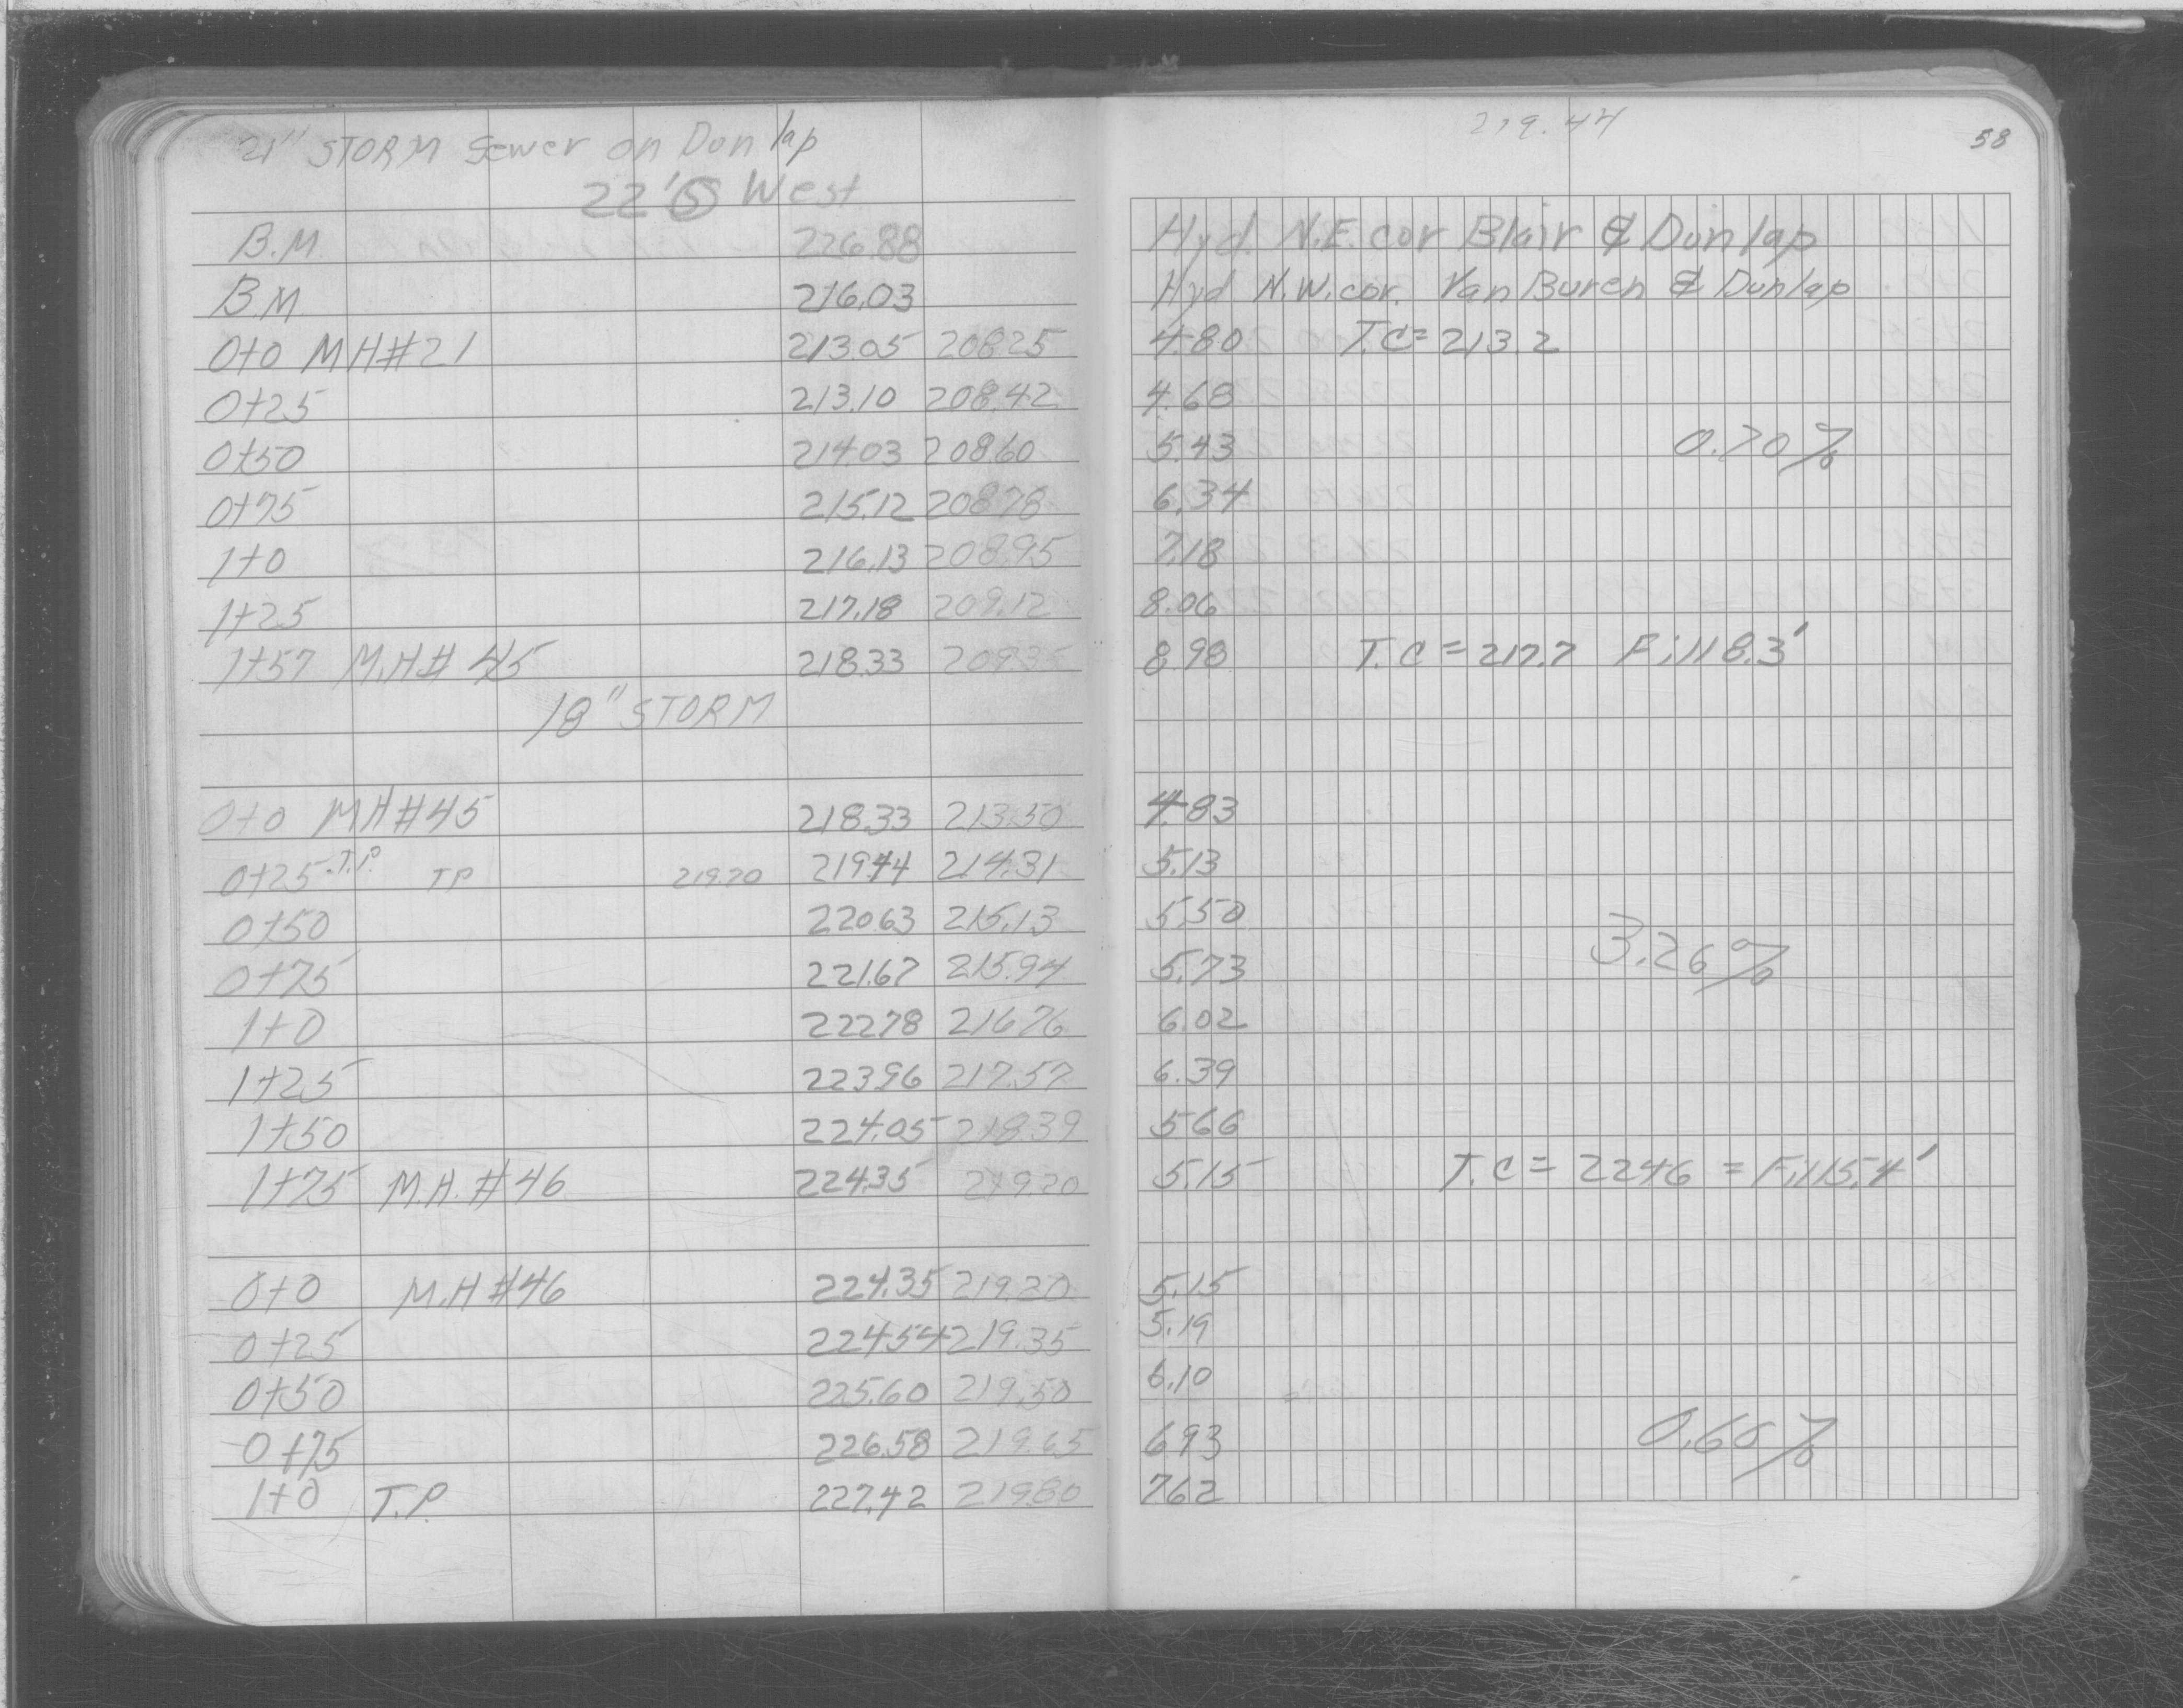 21" STORM Sewer on Dunlap
22' Ⓢ West
B.M. 226.88
B.M. 216.03
0+0 MH#21 213.05 208.25
0+25 213.10 208.42
0+50 214.03 208.60
0+75 215.12 208.78
1+0 216.13 208.95
1+25 217.18 209.12
1+57 M.H# 45 218.33 209.35
18" STORM
0+0 MH#45 218.33 213.50
0+25 T.P. TP 219.20 219.44 214.31
0+50 220.63 215.13
0+75 221.67 215.94
1+0 222.78 216.76
1+25 223.96 217.57
1+50 224.05 218.39
1+75 M.H. #46 224.35 219.20
0+0 M.H #46 224.35 219.20
0+25 224.54 219.35
0+50 225.60 219.50
0+75 226.58 219.65
1+0 T.P. 227.42 219.80
219.44
58
Hyd. N.E. cor Blair & Dunlap
Hyd N.W. cor. Van Buren & Dunlap
4.80 T.C = 213.2
4.68
5.43 0.70%
6.34
7.18
8.06
8.98 T.C = 217.7 Fill 8.3'
4.83
5.13
5.50
5.73 3.26%
6.02
6.39
5.66
5.15 T.C = 224.6 = Fill 5.4'
5.15
5.19
6.10
6.93 0.60%
7.62